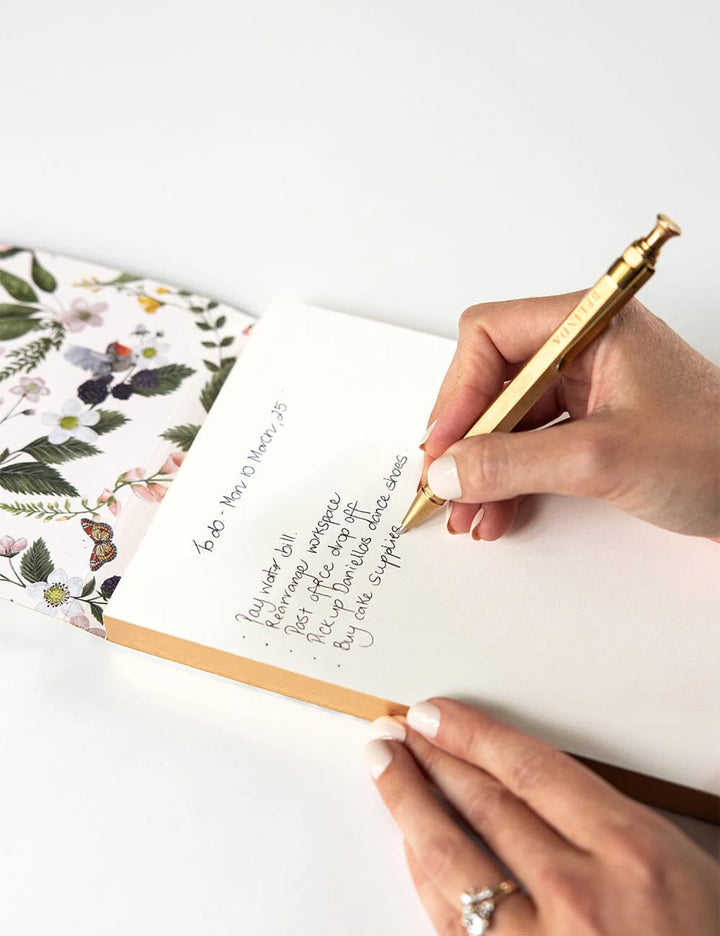 To do - Mon 10 March, 25.
· Pay water bill.
· Rearrange workspace
· Post office drop off
· Pick up Daniellas dance shoes.
· Buy cake supplies
BELINDA